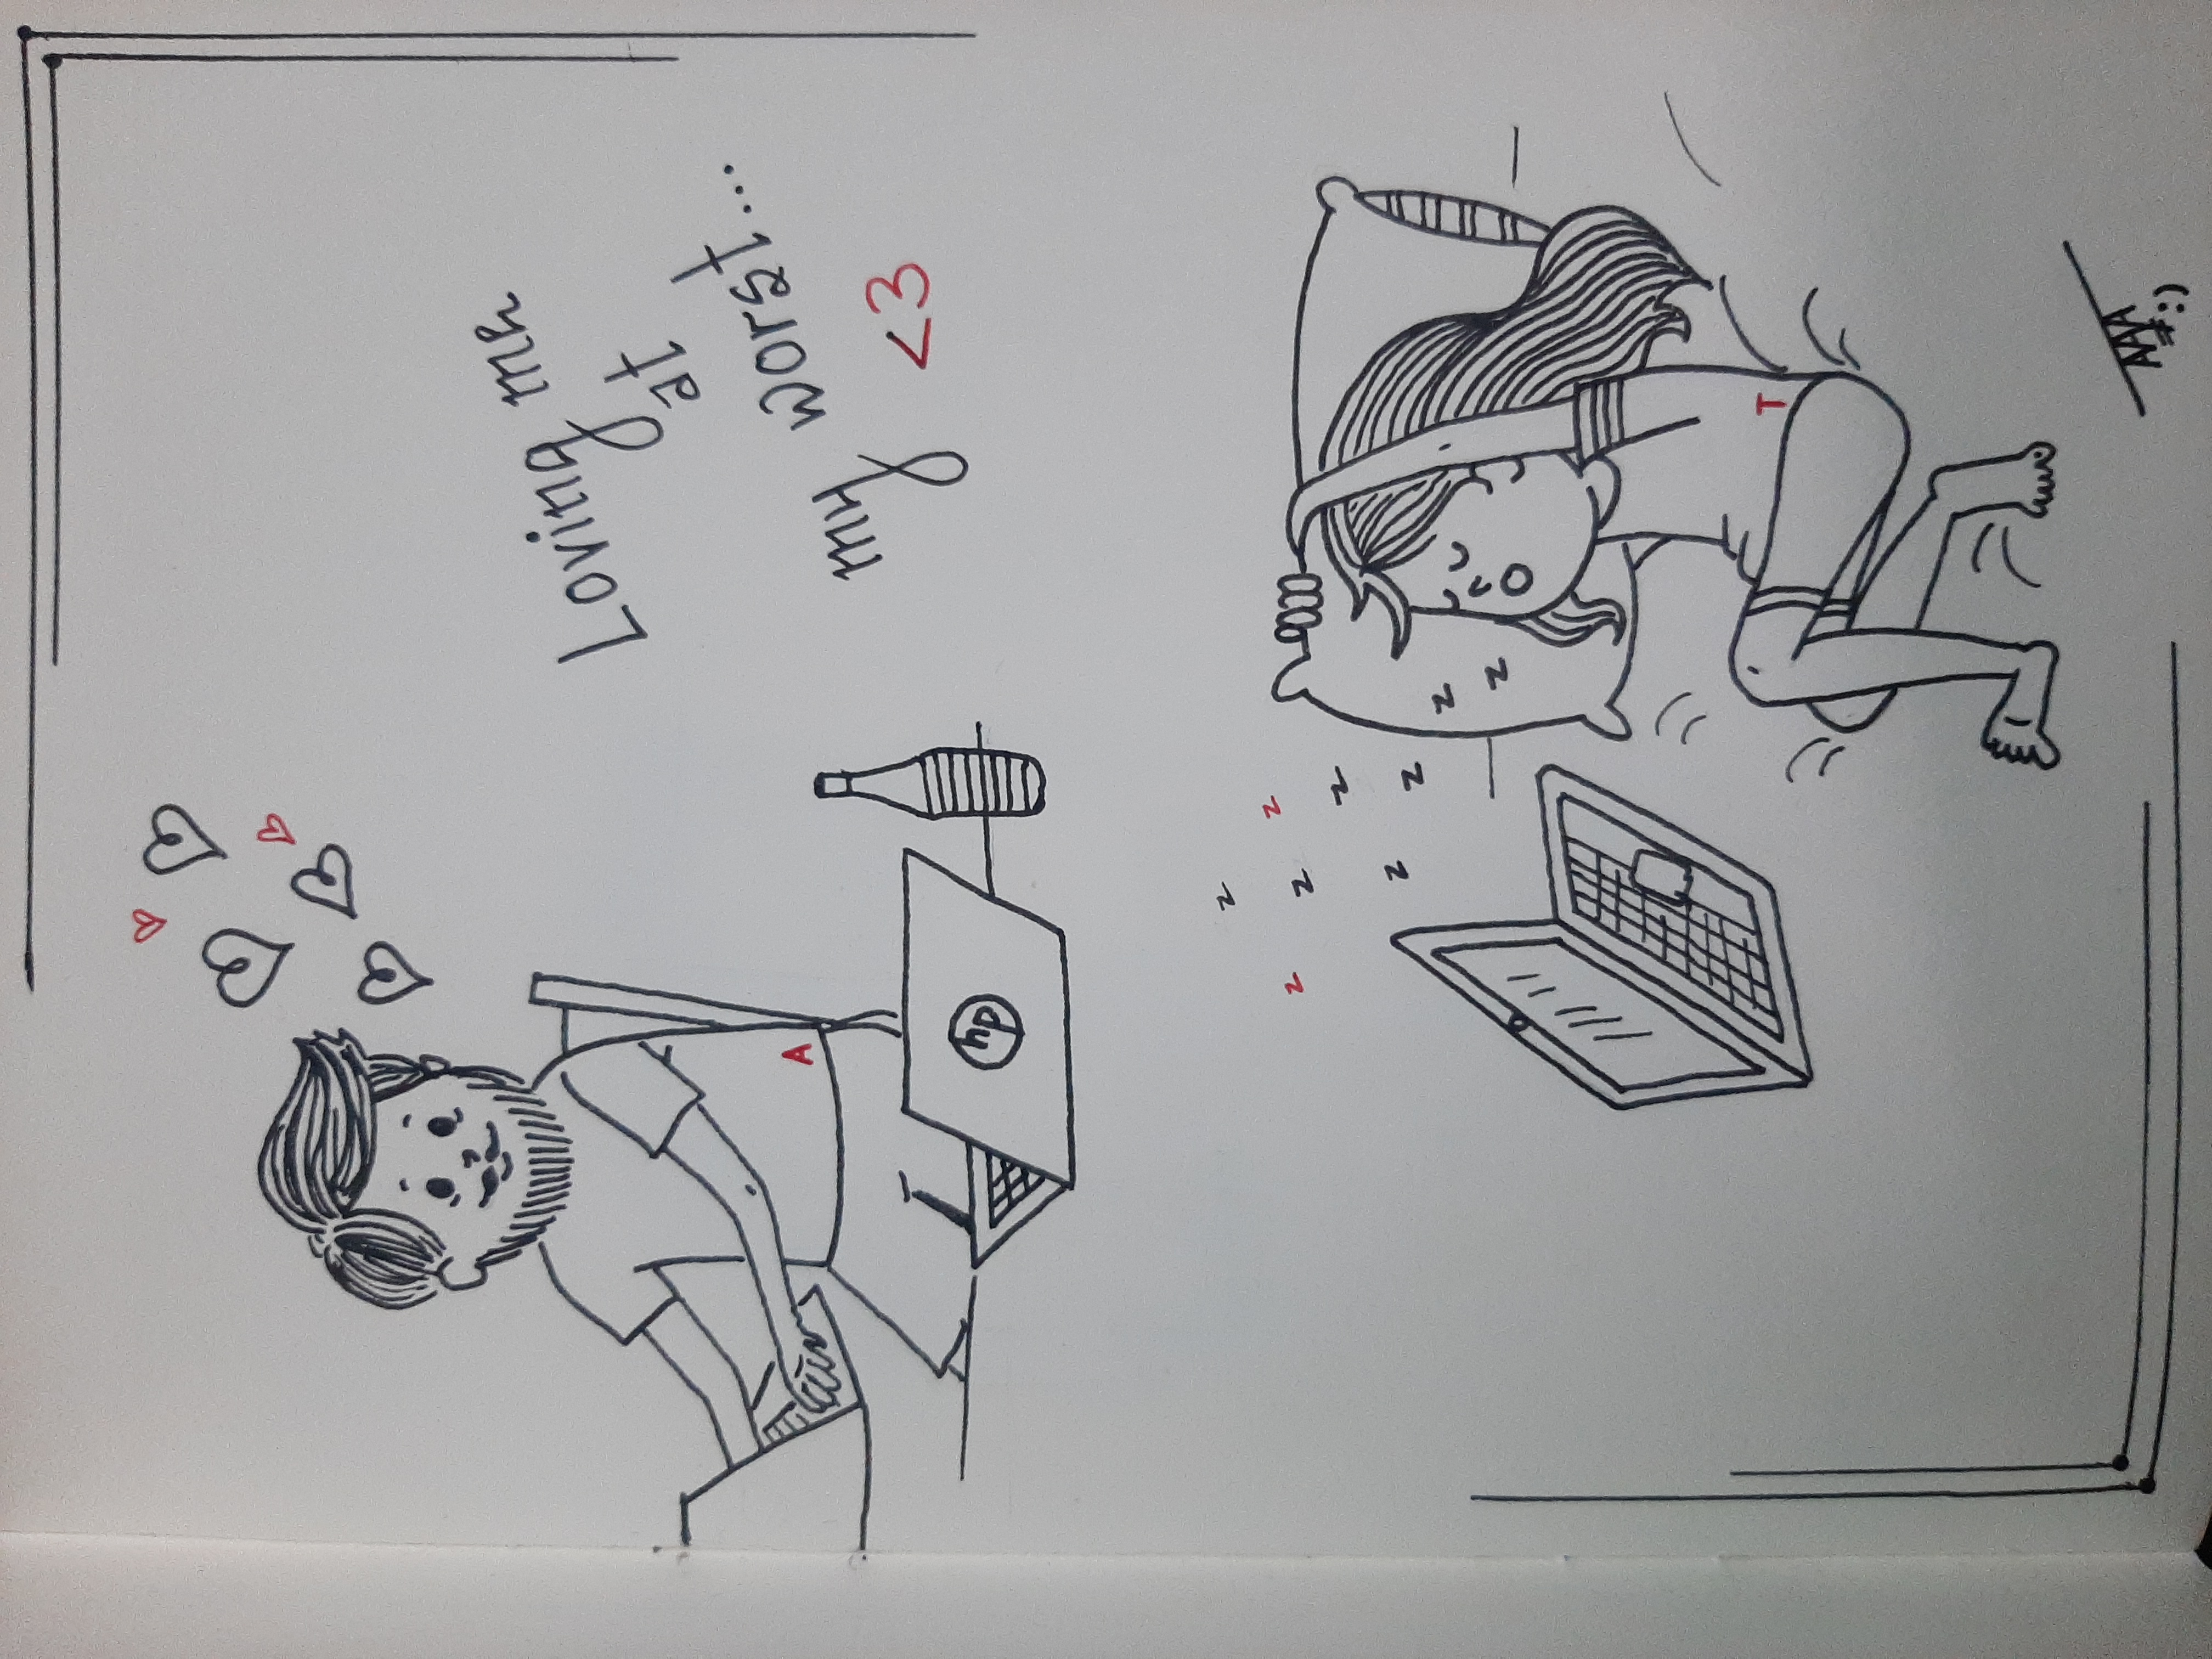 Loving me
at
my worst...
<3
A
hp
z
z
z
z
z
z
z
z
z
T
AAA
:)